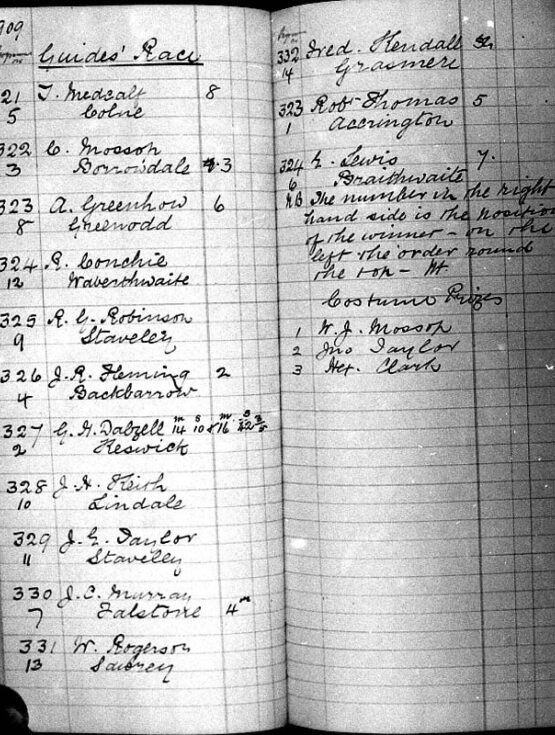 909
Guides' Race
21 T. Medcalf 8
5 Colne
322 C. Mossop
3 Borrowdale 3
323 A. Greenhow 6
8 Greenodd
324 R. Conchie
12 Waberthwaite
325 R. G. Robinson
9 Staveley
326 J. R. Fleming 2
4 Backbarrow
327 G. H. Dalzell
2 Keswick
328 J. H. Keith
10 Lindale
329 J. E. Taylor
11 Staveley
330 J. C. Murray
7 Falstone 4
331 W. Rogerson
13 Sawrey
332 Fred. Kendall
14 Grasmere
323 Robt Thomas 5
1 Accrington
324 E. Lewis 7.
6 Braithwaite
NB The number in the right
hand side is the position
of the winner - on the
left the order round
the top -
Costume Prizes
1 W. J. Mossop
2 Jno Taylor
3 Alex. Clark